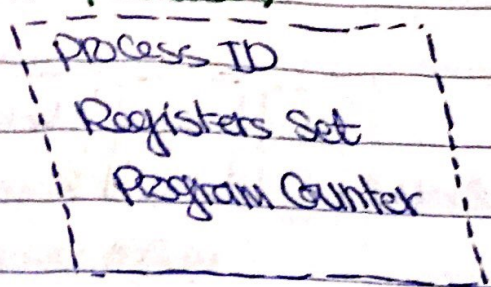 Process ID
Registers Set
Program Counter